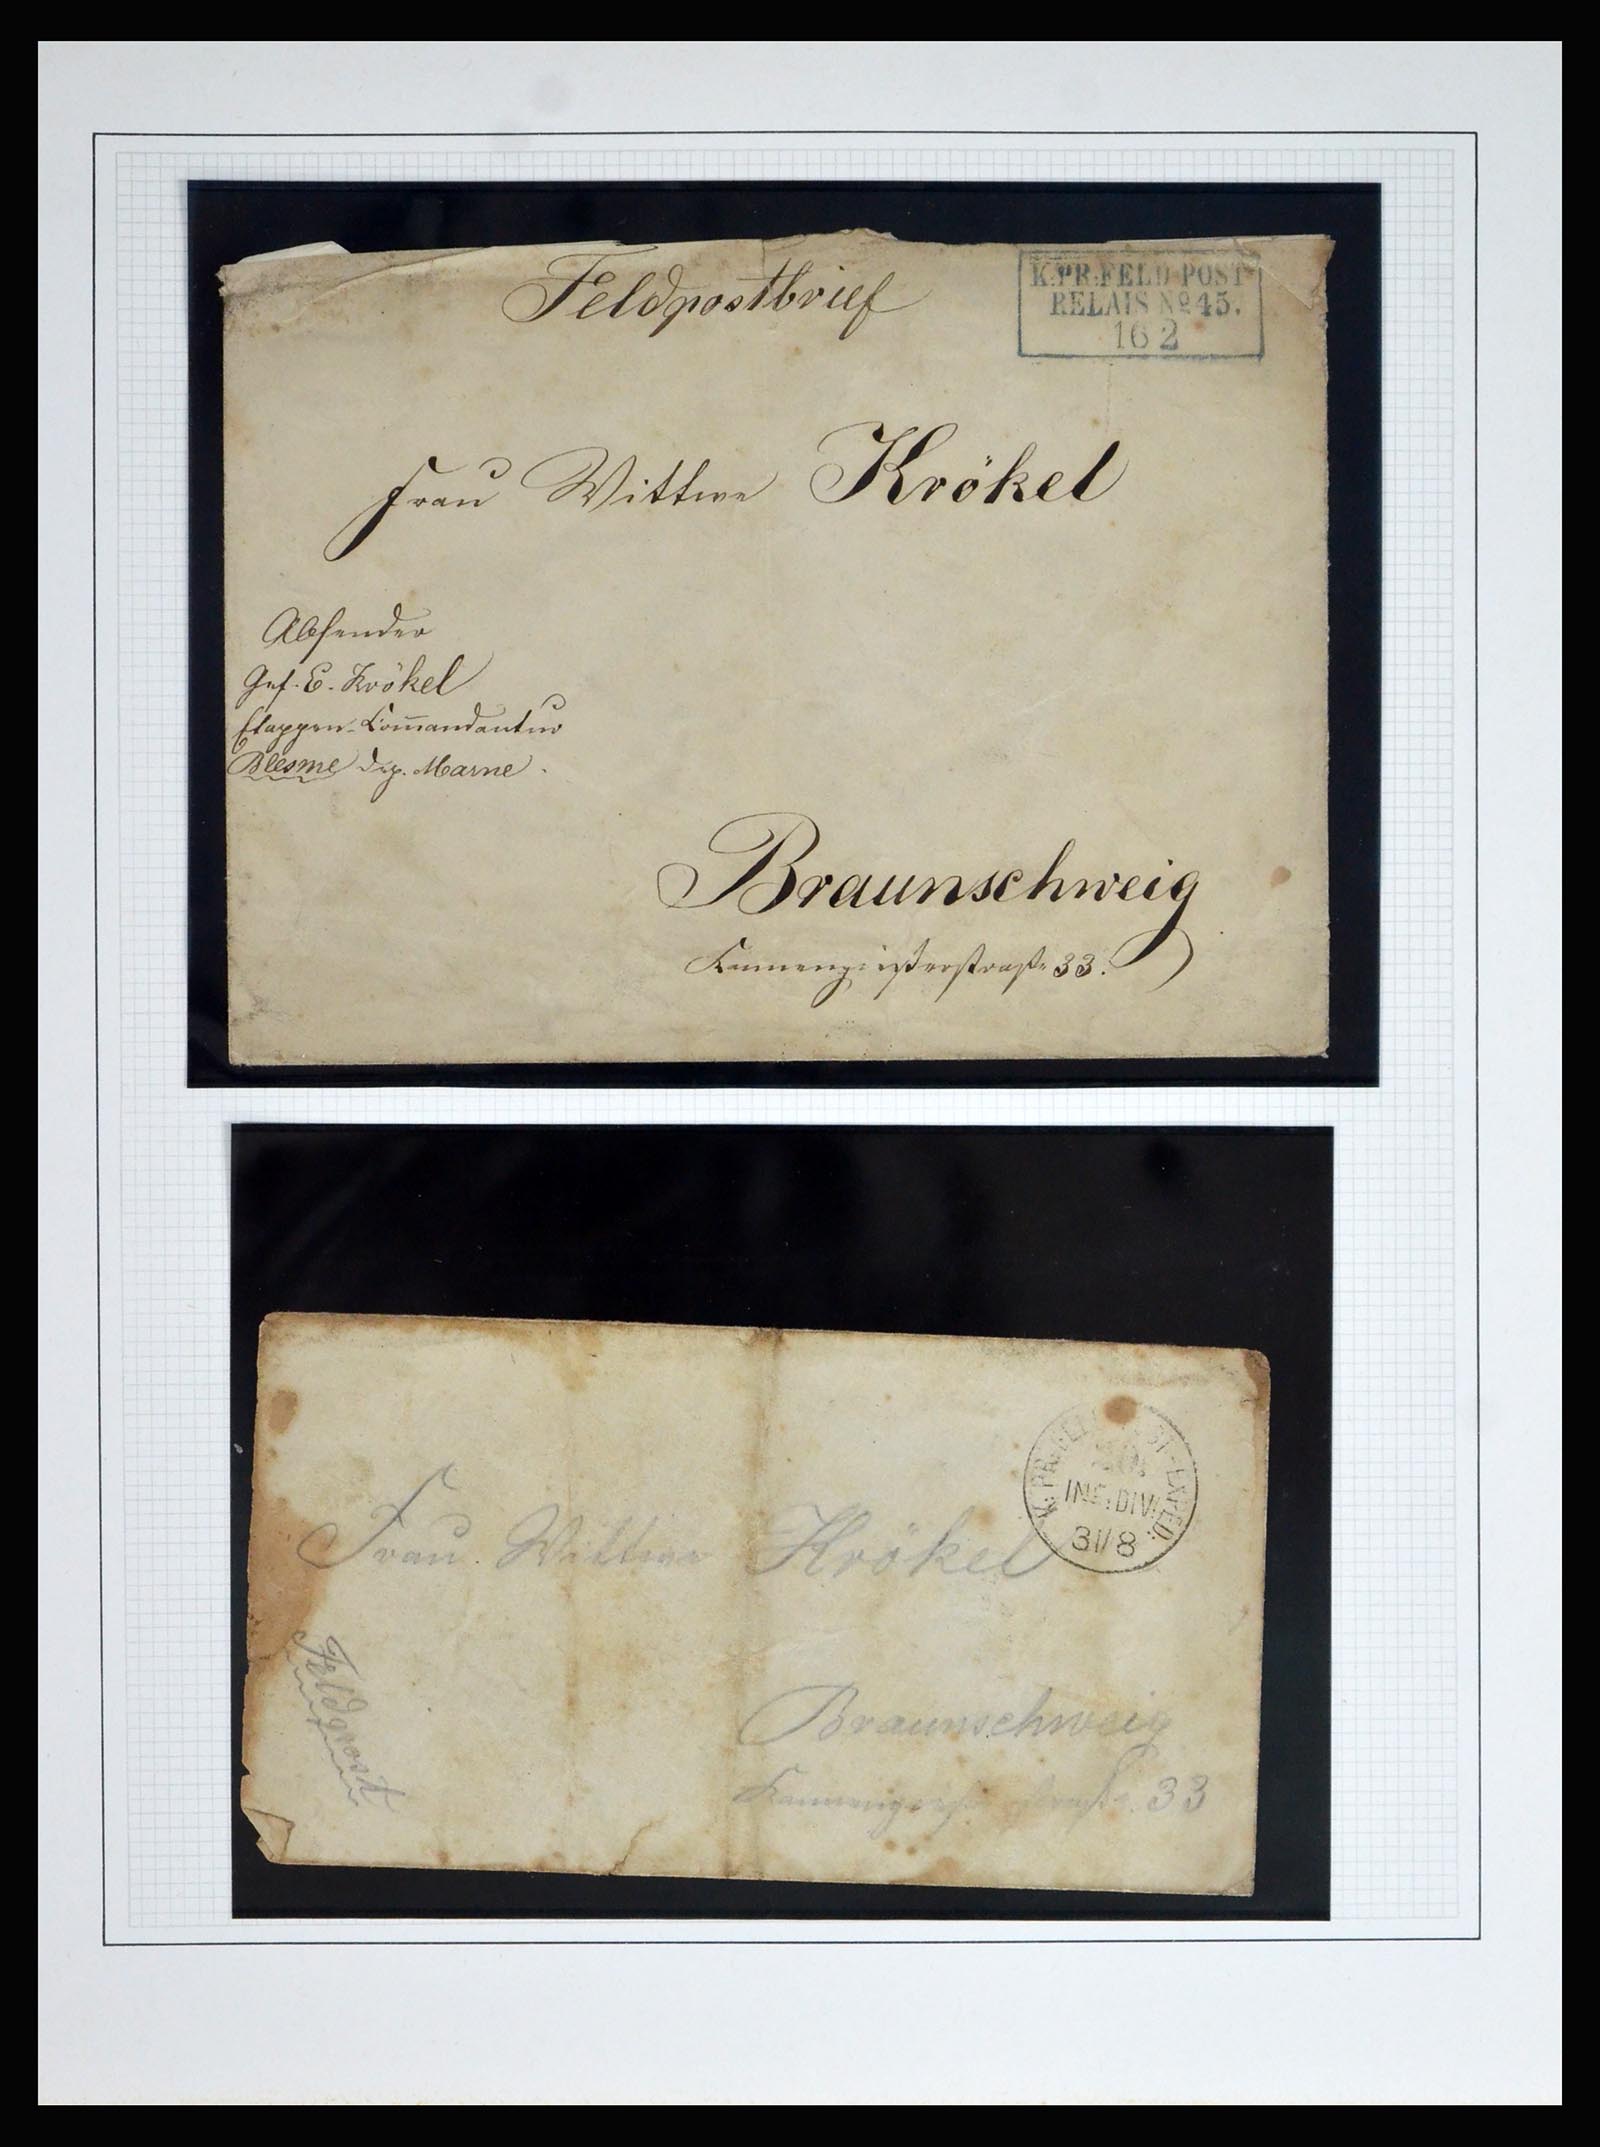 Feldpostbrief
K:PR:FELD-POST-
RELAIS No 45.
16 2
Frau Wittwe Krökel
Absender
Gef. E. Krökel
Etappen-Com̄andantur
Blesme Dep. Marne.
Braunschweig
Kannengießerstraße 33.
K:PR:FELDPOST-EXPED:
INF:DIV:
31/8
Frau Wittwe Krökel
Feldpost
Braunschweig
33